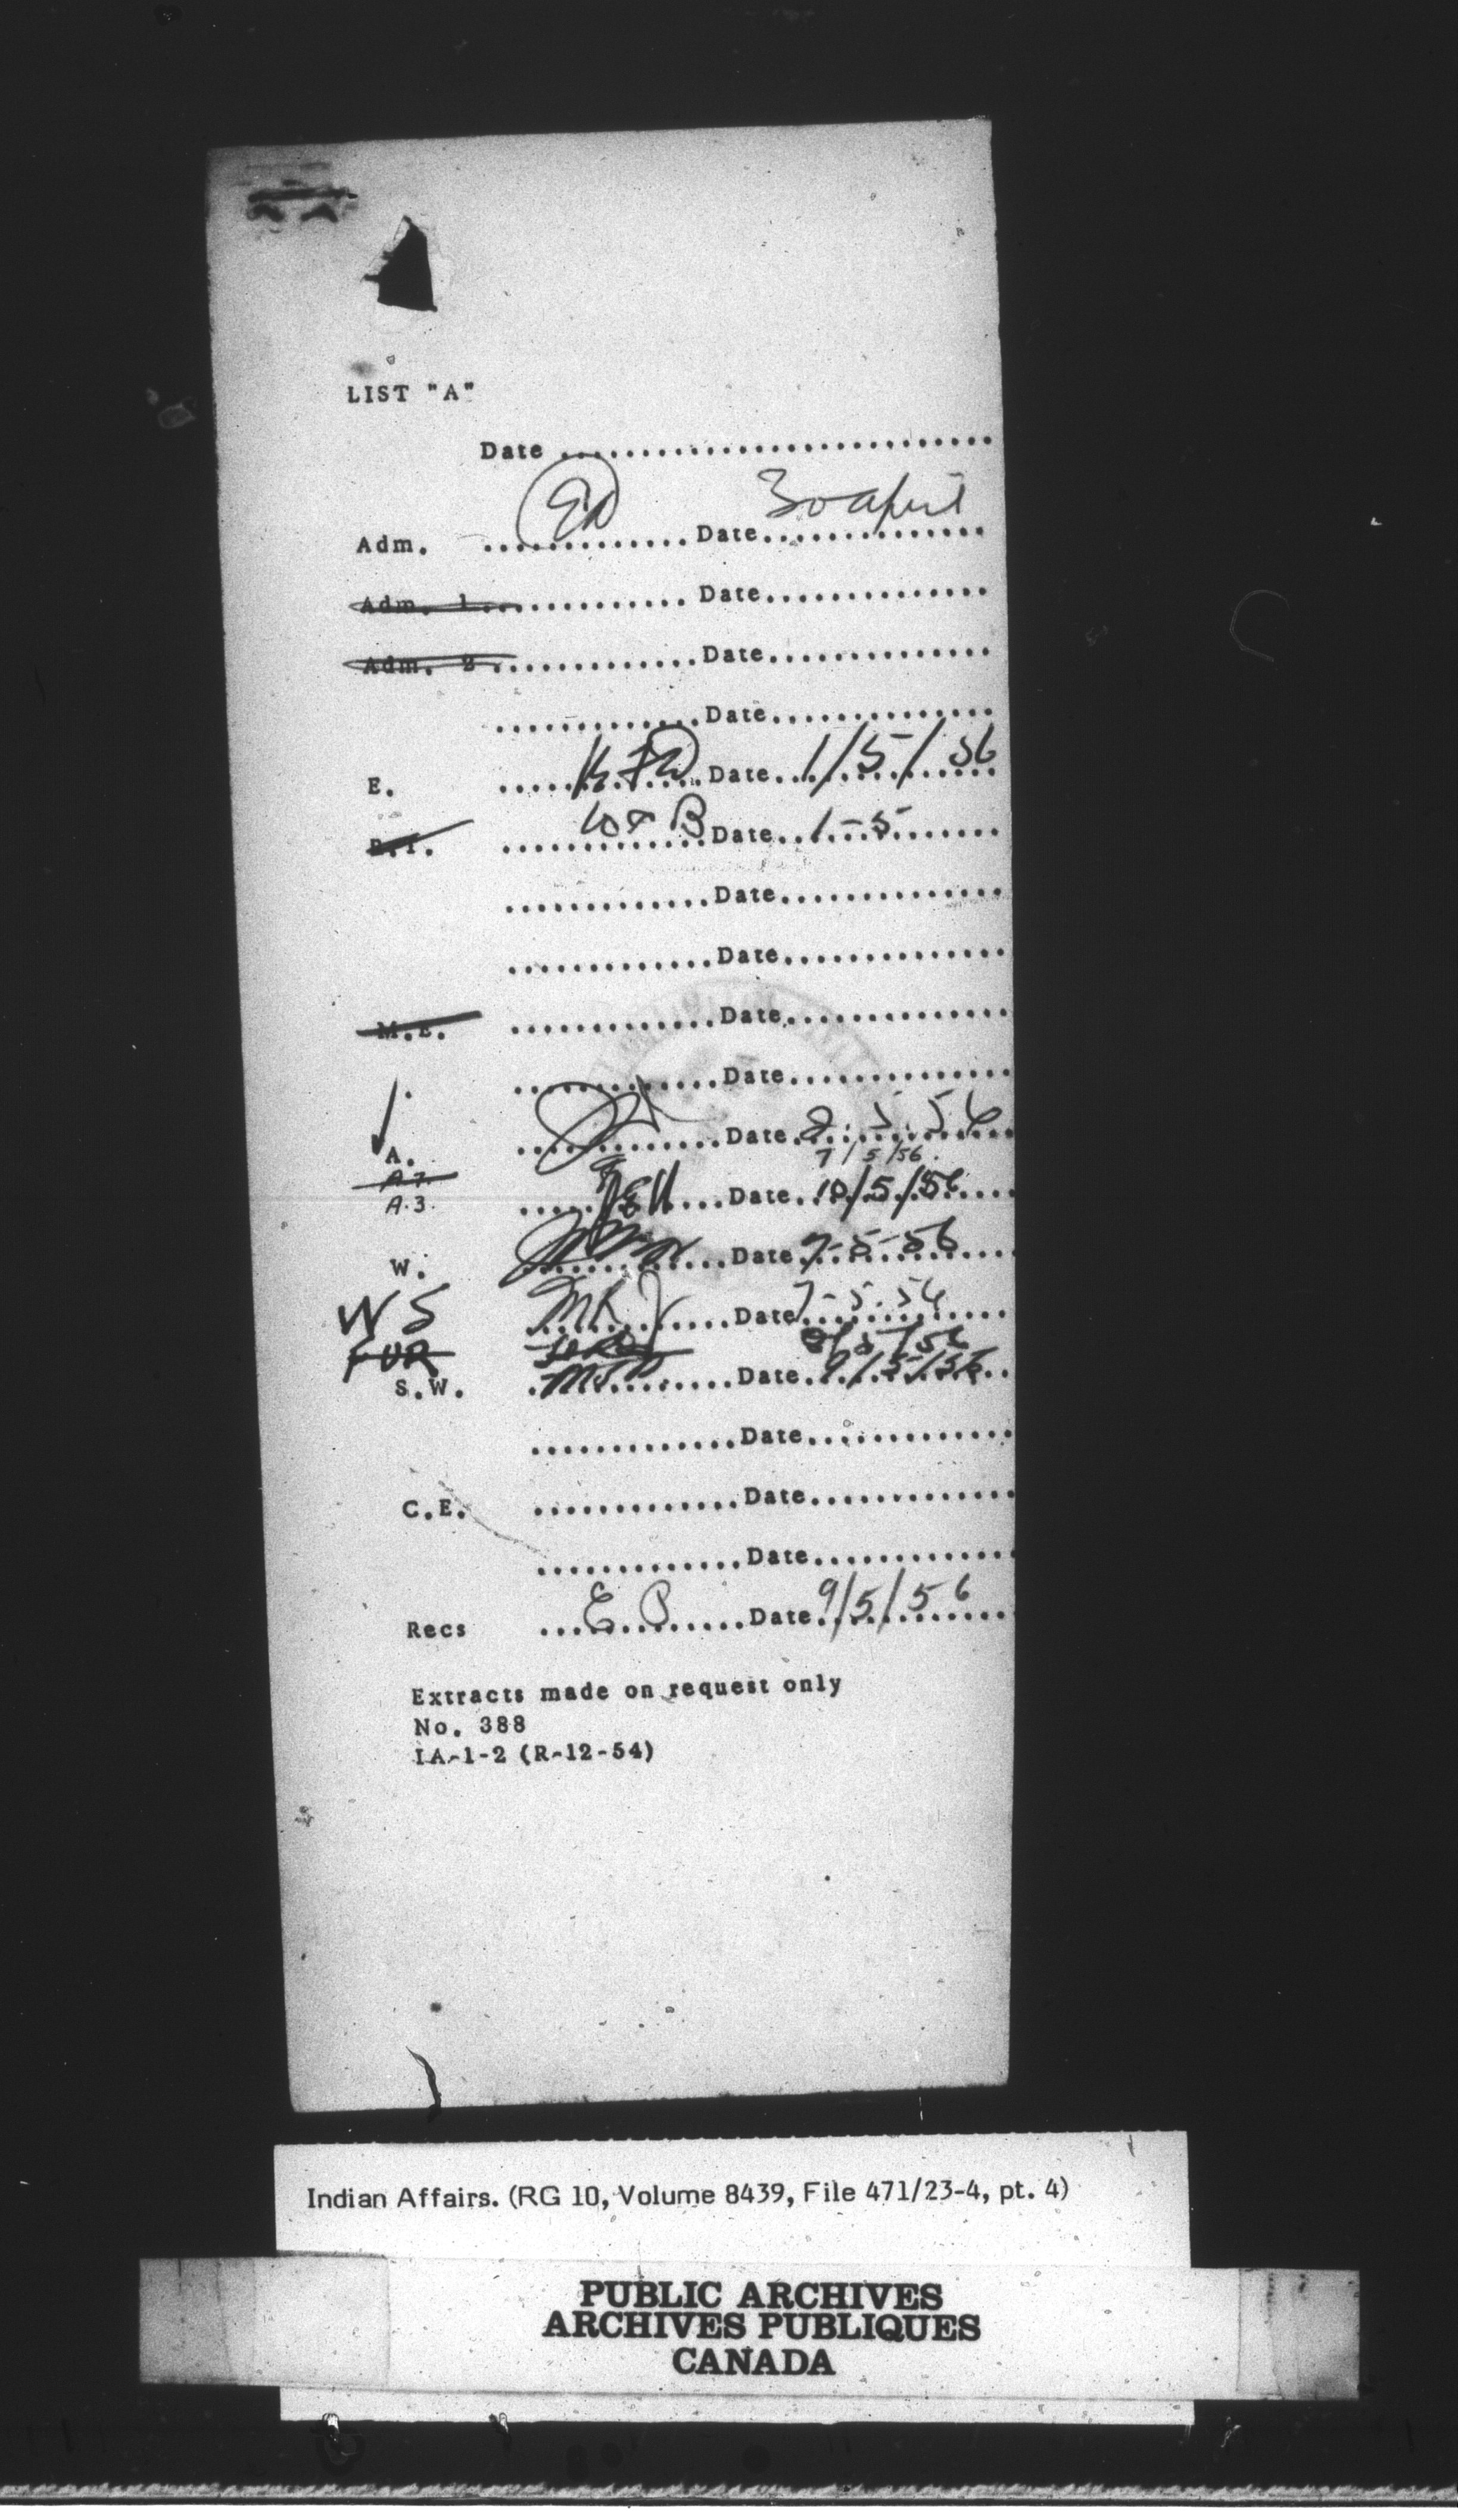 LIST "A"
Date ...........................
Adm. ............. Date.............. 30 april
Adm. 1.............. Date..............
Adm. 2 .............Date..............
.............Date..............
E. .............Date.............. 1/5/56
.............Date.............. 1-5
.............Date..............
.............Date..............
M.E. .............Date..............
.............Date..............
A. .............Date..............
7/5/56
A.3. .............Date.............. 10/5/56
W. .............Date.............. 7-5-56
WS .............Date..............
FUR
S.W. .............Date.............. 9/5/56
.............Date.............
C.E. .............Date.............
.............Date.............
Recs ....E.P......Date............. 9/5/56
Extracts made on request only
No. 388
IA-1-2 (R-12-54)
Indian Affairs. (RG 10, Volume 8439, File 471/23-4, pt. 4)
PUBLIC ARCHIVES
ARCHIVES PUBLIQUES
CANADA